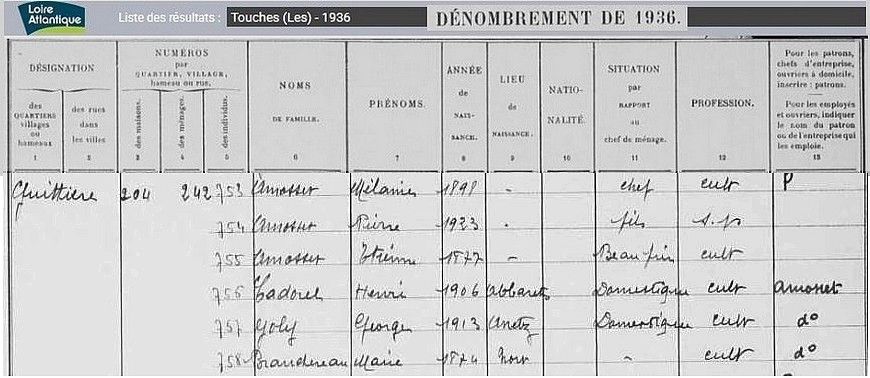 Loire Atlantique
Liste des résultats : Touches (Les) - 1936
DÉNOMBREMENT DE 1936.
DÉSIGNATION
des QUARTIERS villages ou hameaux
des rues dans les villes
NUMÉROS par QUARTIER, VILLAGE, hameau ou rue.
des maisons.
des ménages.
des individus.
NOMS DE FAMILLE.
PRÉNOMS.
ANNÉE de NAISSANCE.
LIEU de NAISSANCE.
NATIONALITÉ.
SITUATION par RAPPORT au chef de ménage.
PROFESSION.
Pour les patrons, chefs d'entreprise, ouvriers à domicile, inscrire : patrons.
Pour les employés et ouvriers, indiquer le nom du patron ou de l'entreprise qui les emploie.
1 2 3 4 5 6 7 8 9 10 11 12 13
204 242 753 Amosset Mélanie 1898 - chef cult P
754 Amosset Pierre 1923 . fils s.p
755 Amosset Etienne 1877 - Beau frère cult
756 Henri 1906 Abbaretz Domestique cult
757 Goly Georges 1913 Anetz Domestique cult d°
758 Marie 1874 Nort - cult d°